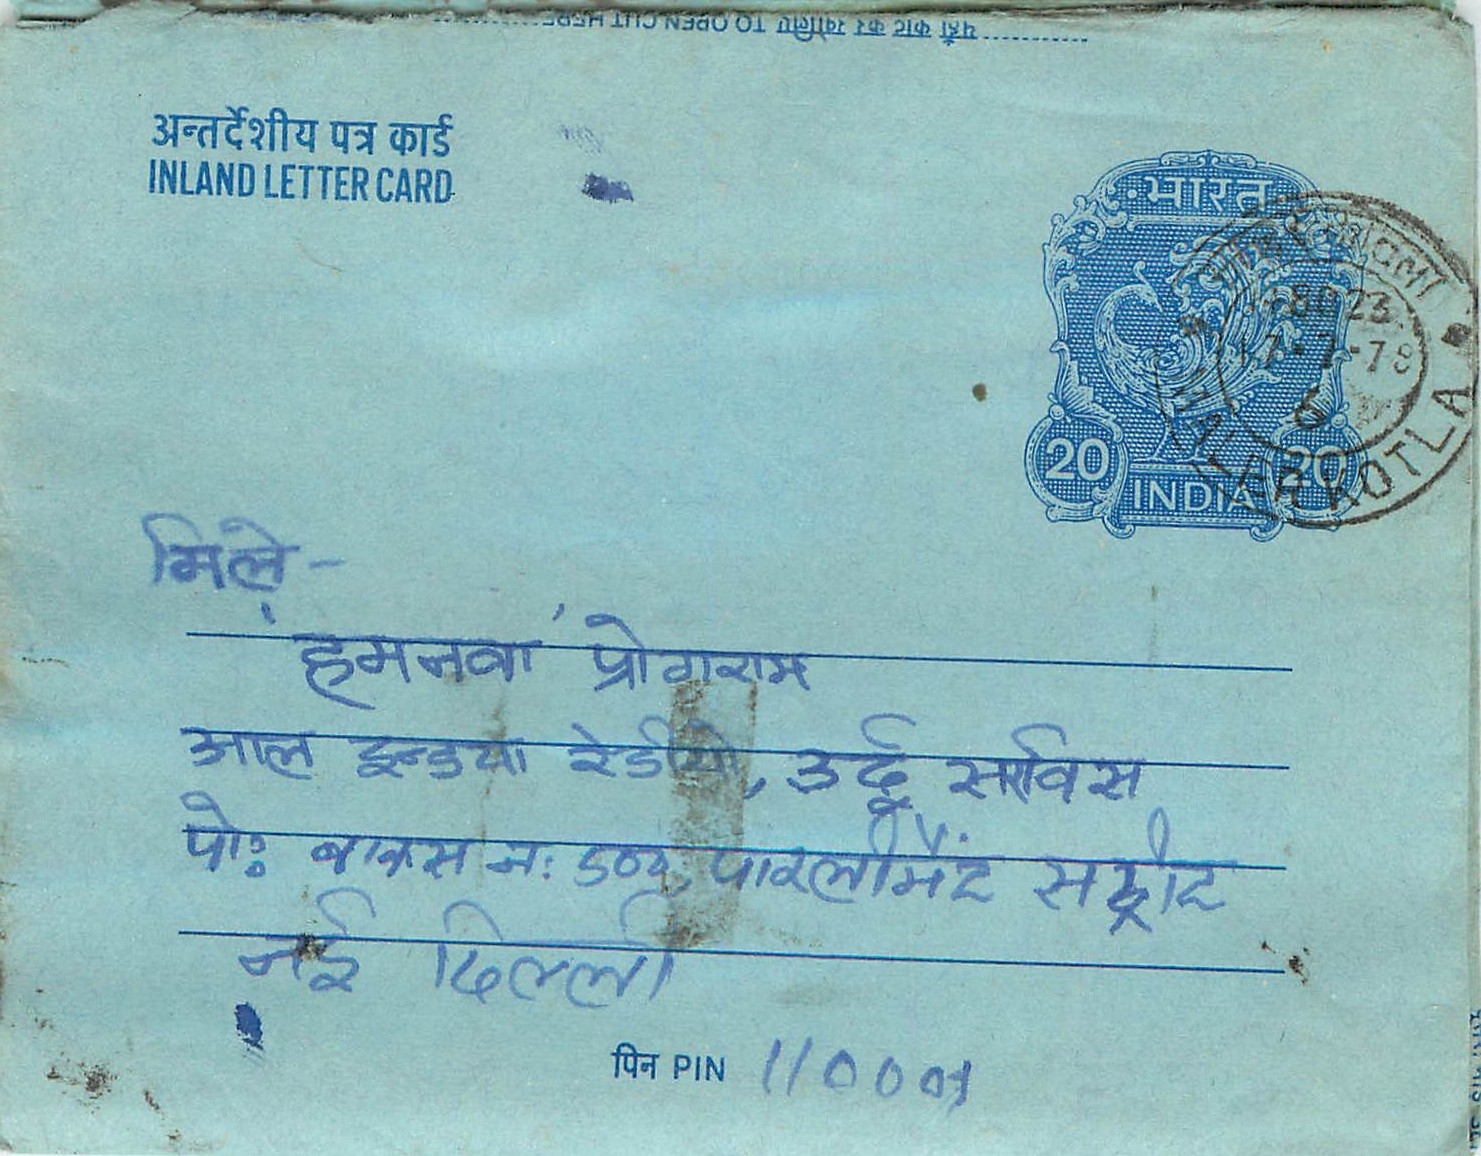 यहाँ काट कर खोलिए TO OPEN CUT HERE
अन्तर्देशीय पत्र कार्ड
INLAND LETTER CARD
भारत
8023
17-7-78
6
MALERKOTLA
20
20
INDIA
मिले -
'हमनवा' प्रोगराम
आल इन्डया रेडीयो, उर्दू सर्विस
पो: बाकस न: 502, पारलीमैंट सट्रीट
नई दिल्ली
पिन PIN 110001